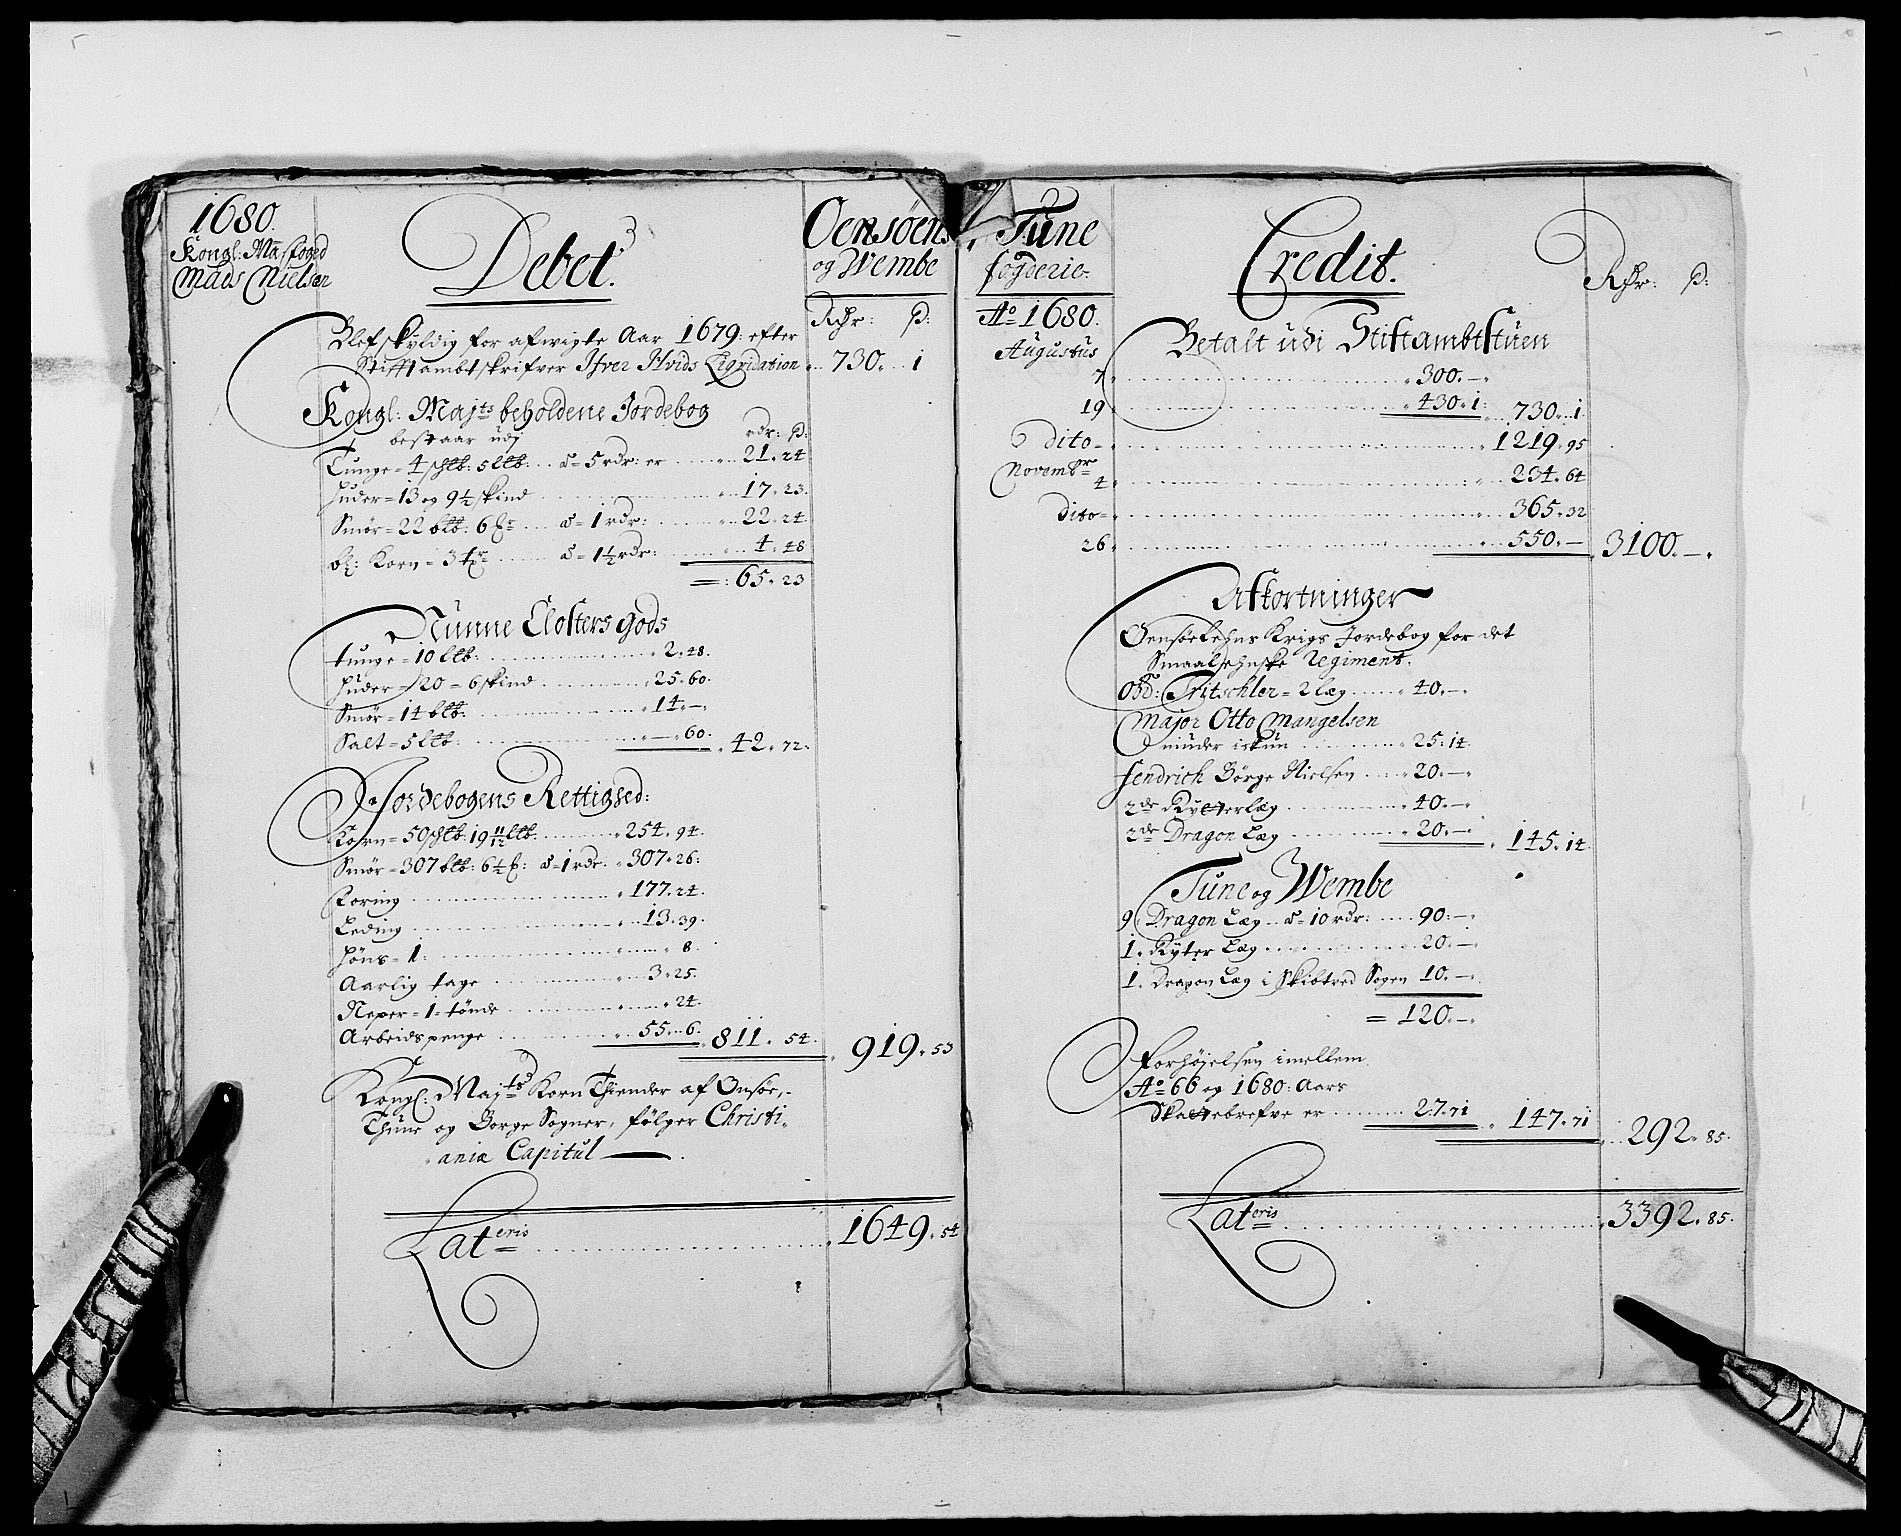 1680.
Kongl: Ma: foged
Mads Nielsen
Debet.
Oensöens
og Wembe
Rdr: ß:
Blef skyldig for afwigte Aar 1679: efter
Stifftambtskrifver Ifver Hvids Liqvidation 730. 1
Kongl: Majts beholdene Jordebog
bestaar udj rdr: ß:
Tunge = 4 schtb: 5 ltb: á = 5 rdr: er 21. 24
Huder = 13 og 9½ skind 17. 23.
Smör = 22 bltb: 6 á = 1 rdr: 22. 24
bl: Korn = 3 á = 1½ rdr: 4. 48
=: 65. 23
Nunne Closters gods
tunge = 10 ltb: 2. 48.
Huder = 20 = 6 skind 25. 60.
Smör = 14 bltb: 14. —.
Salt = 5 ltb: —. 60. 42. 72.
Jordebogens Rettighed:
Korn = 50 schtb: 19 11/12 ltb. 254. 94.
Smör = 307 bltb: 6½ á = 1 rdr. 307. 26:
Foring 177. 24.
Leding 13. 39.
Höns = 1: 8.
Aarlig tage 3. 25.
Neper = 1 = tönde 24.
Arbeidspenge 55. 6. 811. 54. 919. 53
Kongl: Majts Korn Thiender af Onsöe,
Thune og Borge Sogner, fölger Christi-
ania Capitul — .
Lateris 1649. 54
Tune
fogderie
Credit.
Rdr: ß:
Ao 1680.
Augustus
Betalt udi Stiftambtstuen
7 300. —.
19 430. 1: 730. 1.
dito 1219. 95
Novembr
4 234. 64
dito 365. 32
26 550. — 3100. —.
Afkortninger
Oensöe Lehns Krigs Jordebog for det
Smaalehnske Regiment.
Obd: Fritschler = 2 læg 40. —.
Major Otto Mangelsen
25. 14.
fendrich Börge Nielsen 20. —.
2de Rytterlæg 40. —.
2de Dragon Læg 20. —. 145. 14.
Tune og Wembe
9. Dragon Læg á = 10 rdr: 90. —.
1. Ryter Læg 20. —.
1. Dragon Læg i Skibtved Sogen 10. —.
= 120. —.
Forhöjelsen imellem
Ao 66 og 1680: Aars
Skattebrefve er 27. 71 147. 71 292. 85.
Lateris 3392. 85.